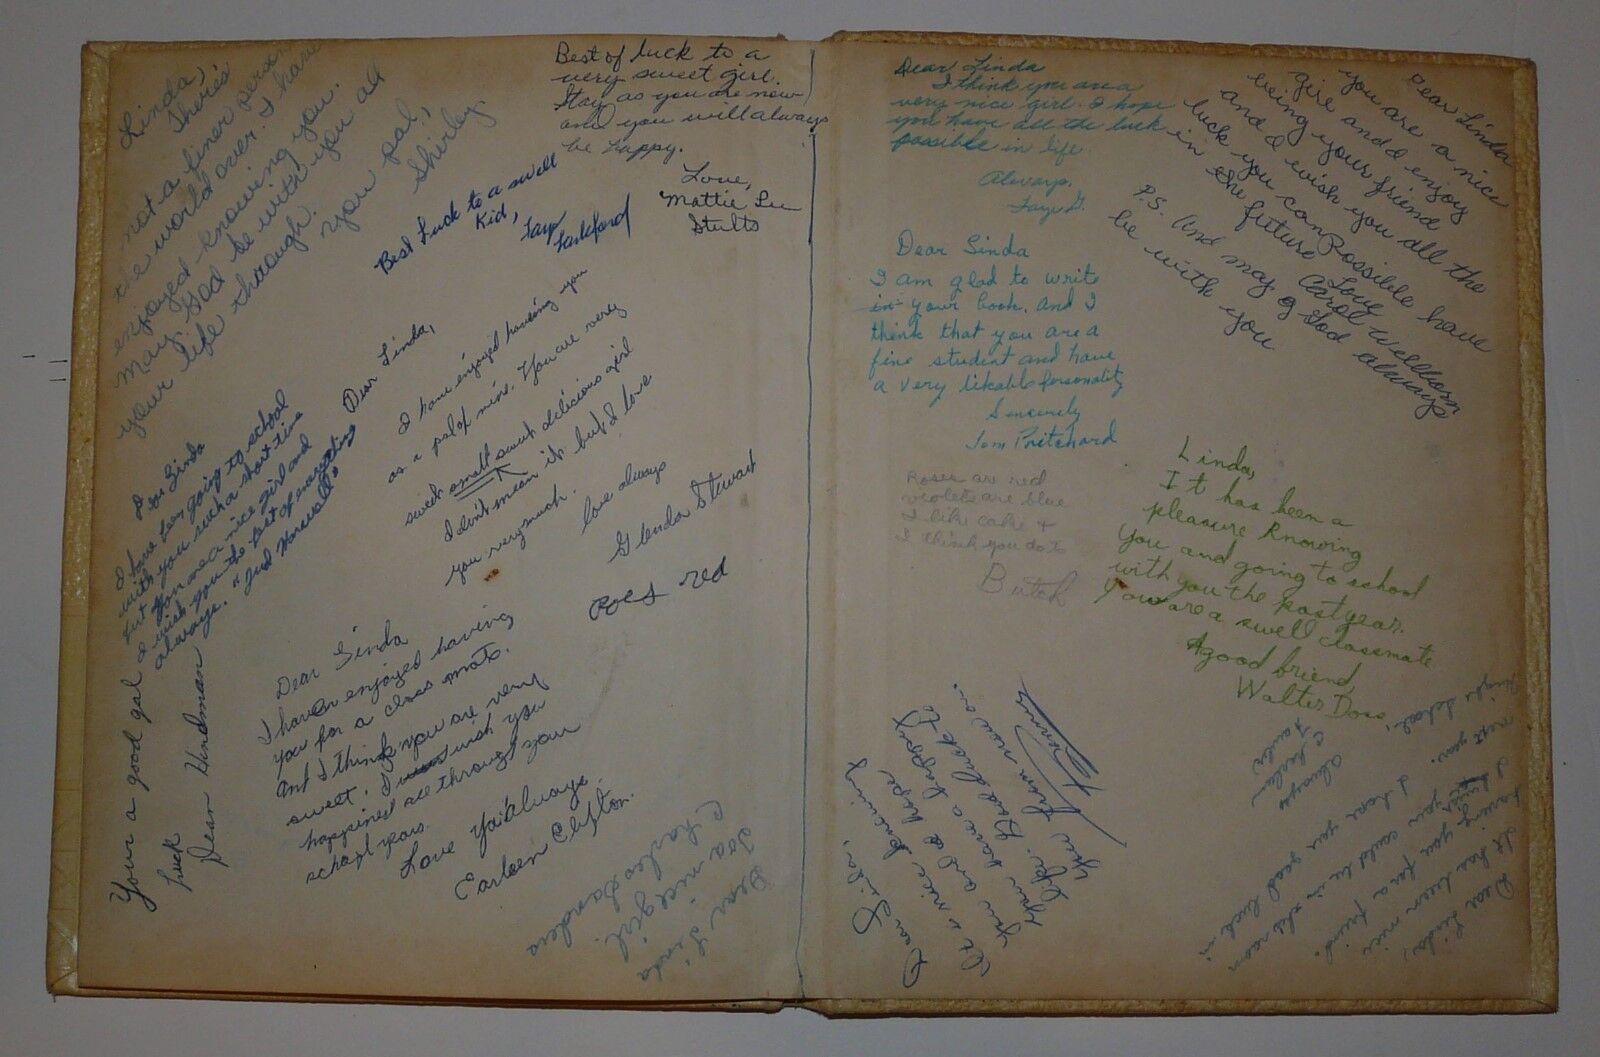 Linda,
There's
not a finer person
the world over. I have
enjoyed knowing you.
May God be with you all
your life through.
Your pal,
Shirley
Best of luck to a
very sweet girl.
Stay as you are now
and you will always
be happy.
Love,
Mattie Lee
Stults
Best Luck to a swell
Kid,
Faye
Dear Linda,
I have enjoyed having you
as a pal of mine. You are very
sweet small sweet delicious girl
I don't mean it but I love
you very much.
love always
Glenda Stewart
Roes red
Dear Linda
I have been going to school
with you such a short time
but you are a nice girl and
I wish you the best of everything
always.
Your a good gal
luck
Dean Hindman
Dear Linda
I haven enjoyed having
you for a class mate.
And I think you are very
sweet. I wish you
happines all through your
school years.
Love Ya Always
Earleen Clifton.
Dear Linda
To a nice girl.
Charles Sanders
Dear Linda
I think you are a
very nice girl. I hope
you have all the luck
possible in life.
Always,
Faye G.
Dear Linda
I am glad to write
in your book. And I
think that you are a
fine student and have
a very likable personality
Sincerly
Tom Pritchard
Roses are red
violets are blue
I like cake &
I think you do to
Butch
Dear Linda
You are a nice
girl and I enjoy
being your friend
and I wish you all the
luck you can Possible have
in the future
Love
Carol Wellborn
P.S. And may God always
be with you
Linda,
It has been a
pleasure Knowing
You and going to school
with you the past year.
You are a swell classmate
A good friend,
Walter Doss
Dear Linda,
It is nice knowing
you and I hope
you have a happy
life. Good luck to
you from now on.
Dear Linda,
It has been nice
having you for a friend.
I hope you good luck in
next year.
Always
Charles